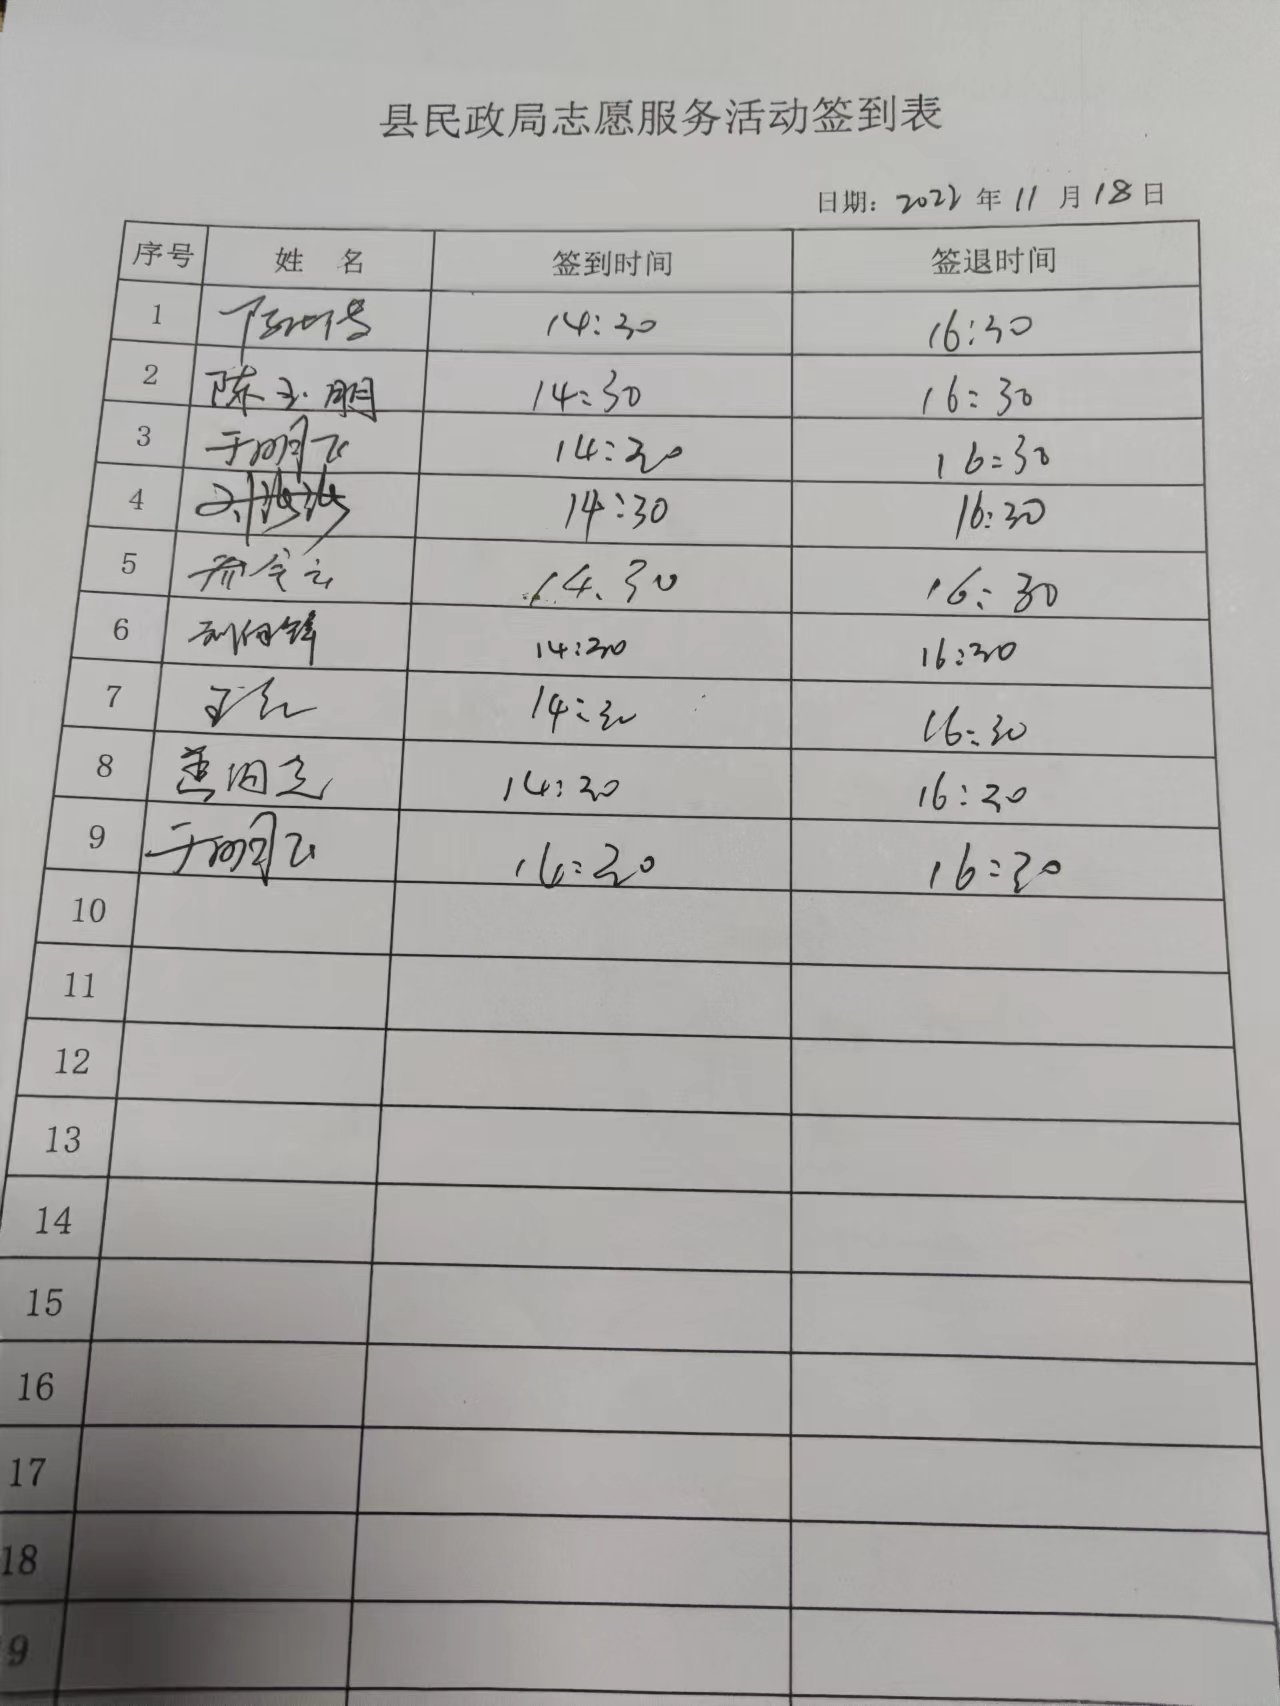 县民政局志愿服务活动签到表
日期: 2022 年 11 月 18 日
序号 姓 名 签到时间 签退时间
1 14:30 16:30
2 陈玉明 14:30 16:30
3 于明飞 14:30 16:30
4 刘鸿鸿 14:30 16:30
5 14.30 16:30
6 14:30 16:30
7 14:30 16:30
8 14:30 16:30
9 于明飞 14:30 16:30
10
11
12
13
14
15
16
17
18
9